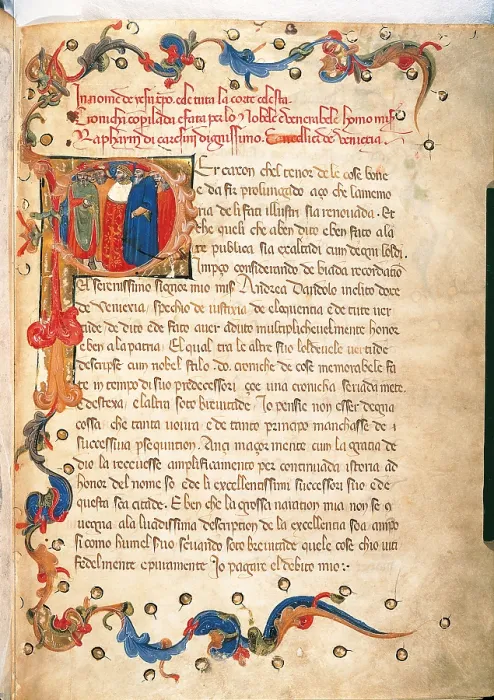 In nome de yesu xpo. e de tuta la corte celestia.
Cronicha copilada e fata per lo Nobele e venerabele homo mis
Raphayn di caresini dignissimo. Cancellier de Venexia.
Per caxon chel tenor de le cose bone
e da fir prolungado aço che la memo
ria de li fati illustri sia renouada. Et
che queli che aben dito e ben fato a la
re publica sia exaltadi cum degni loldi.
Impço considerando de biada recordatio
El serenissimo signor mio mis Andrea Dandolo inclito doxe
de Veniexia, spechio de iusticia de eloquentia e de tute uer
tude. de dito e de fato auer aduto multiplicheuelmente honor
e ben a la patria. El qual tra le altre suo loldeuele uertude
descripse cum nobel stilo .do. croniche de cose memorabele fa
te in tempo di suo predecessori çoe una cronicha seriada mete.
e destexa. e laltra soto breuitade. Io pensie non esser degna
cossa che tanta uoura e de tanto principo manchasse de
successiua psequution. Anci maçor mente cum la gratia de
dio la receuesse amplificamento per continuada istoria ad
honor del nome so e de li excellentissimi successori suo e de
questa sca citade. E ben che la grossa naration mia non se
uegna a la lucidissima description de la excellentia soa ampo
si como humel suo seruando soto breuitade quele cose chio uiti
fedelmente e puramente Io pagare el debito mio :-